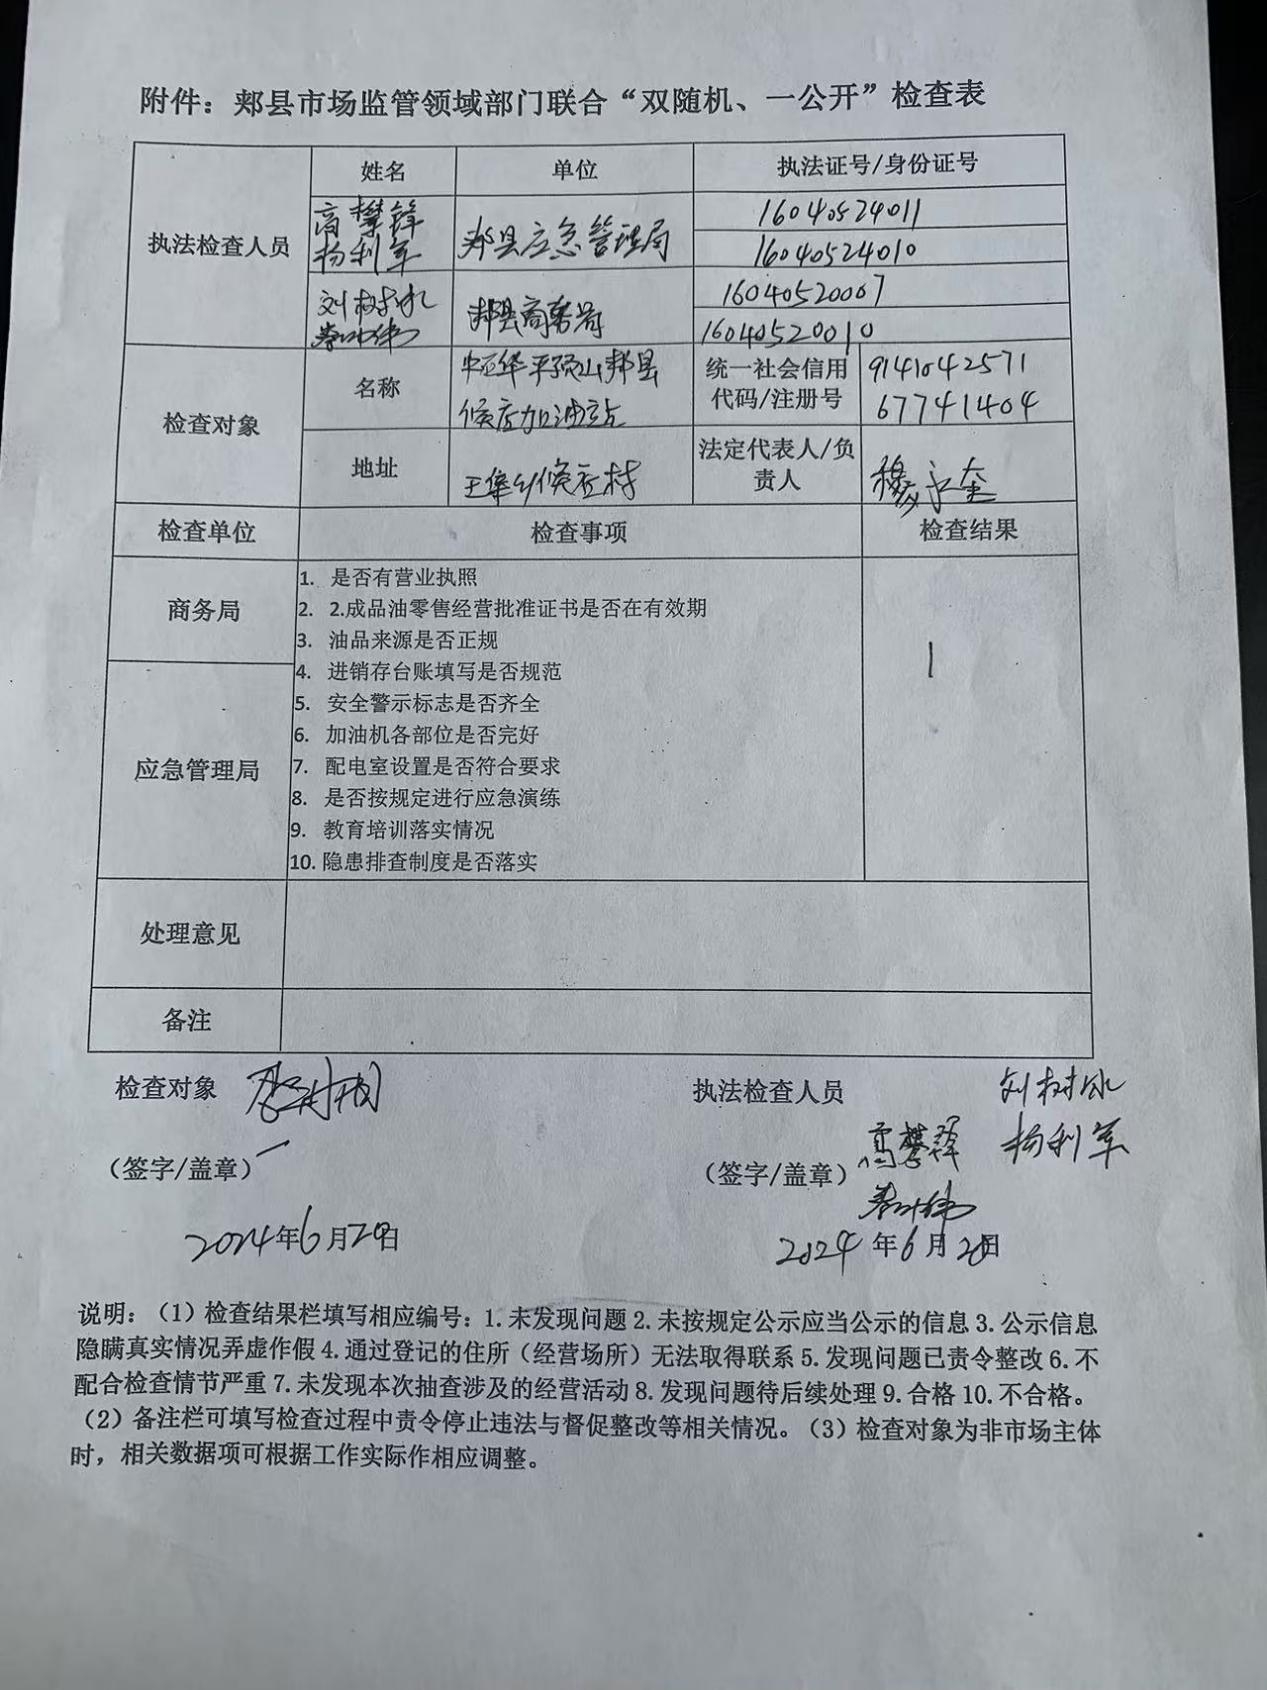 附件：郏县市场监管领域部门联合“双随机、一公开”检查表
执法检查人员 姓名 单位 执法证号/身份证号
高攀锋 郏县应急管理局 16040524011
杨利军 16040524010
刘树冰 郏县商务局 16040520007
16040520010
检查对象 名称 中石化平顶山郏县 统一社会信用 9141042571
候店加油站 代码/注册号 67741404
地址 王集乡候店村 法定代表人/负
责人 穆永奎
检查单位 检查事项 检查结果
商务局 1. 是否有营业执照
2. 2.成品油零售经营批准证书是否在有效期
3. 油品来源是否正规
1
应急管理局 4. 进销存台账填写是否规范
5. 安全警示标志是否齐全
6. 加油机各部位是否完好
7. 配电室设置是否符合要求
8. 是否按规定进行应急演练
9. 教育培训落实情况
10. 隐患排查制度是否落实
处理意见
备注
检查对象 执法检查人员 刘树冰
（签字/盖章） （签字/盖章） 高攀锋 杨利军
2024年6月20日 2024年6月20日
说明：（1）检查结果栏填写相应编号：1.未发现问题 2.未按规定公示应当公示的信息 3.公示信息
隐瞒真实情况弄虚作假 4.通过登记的住所（经营场所）无法取得联系 5.发现问题已责令整改 6.不
配合检查情节严重 7.未发现本次抽查涉及的经营活动 8.发现问题待后续处理 9.合格 10.不合格。
（2）备注栏可填写检查过程中责令停止违法与督促整改等相关情况。（3）检查对象为非市场主体
时，相关数据项可根据工作实际作相应调整。